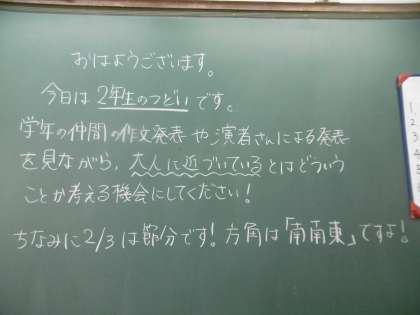 おはようございます。
今日は2年生のつどいです。
学年の仲間の作文発表や演者さんによる発表
を見ながら、大人に近づいているとはどういう
ことか考える機会にしてください！
ちなみに2/3は節分です！方角は「南南東」ですよ！
1
2
3
4
5